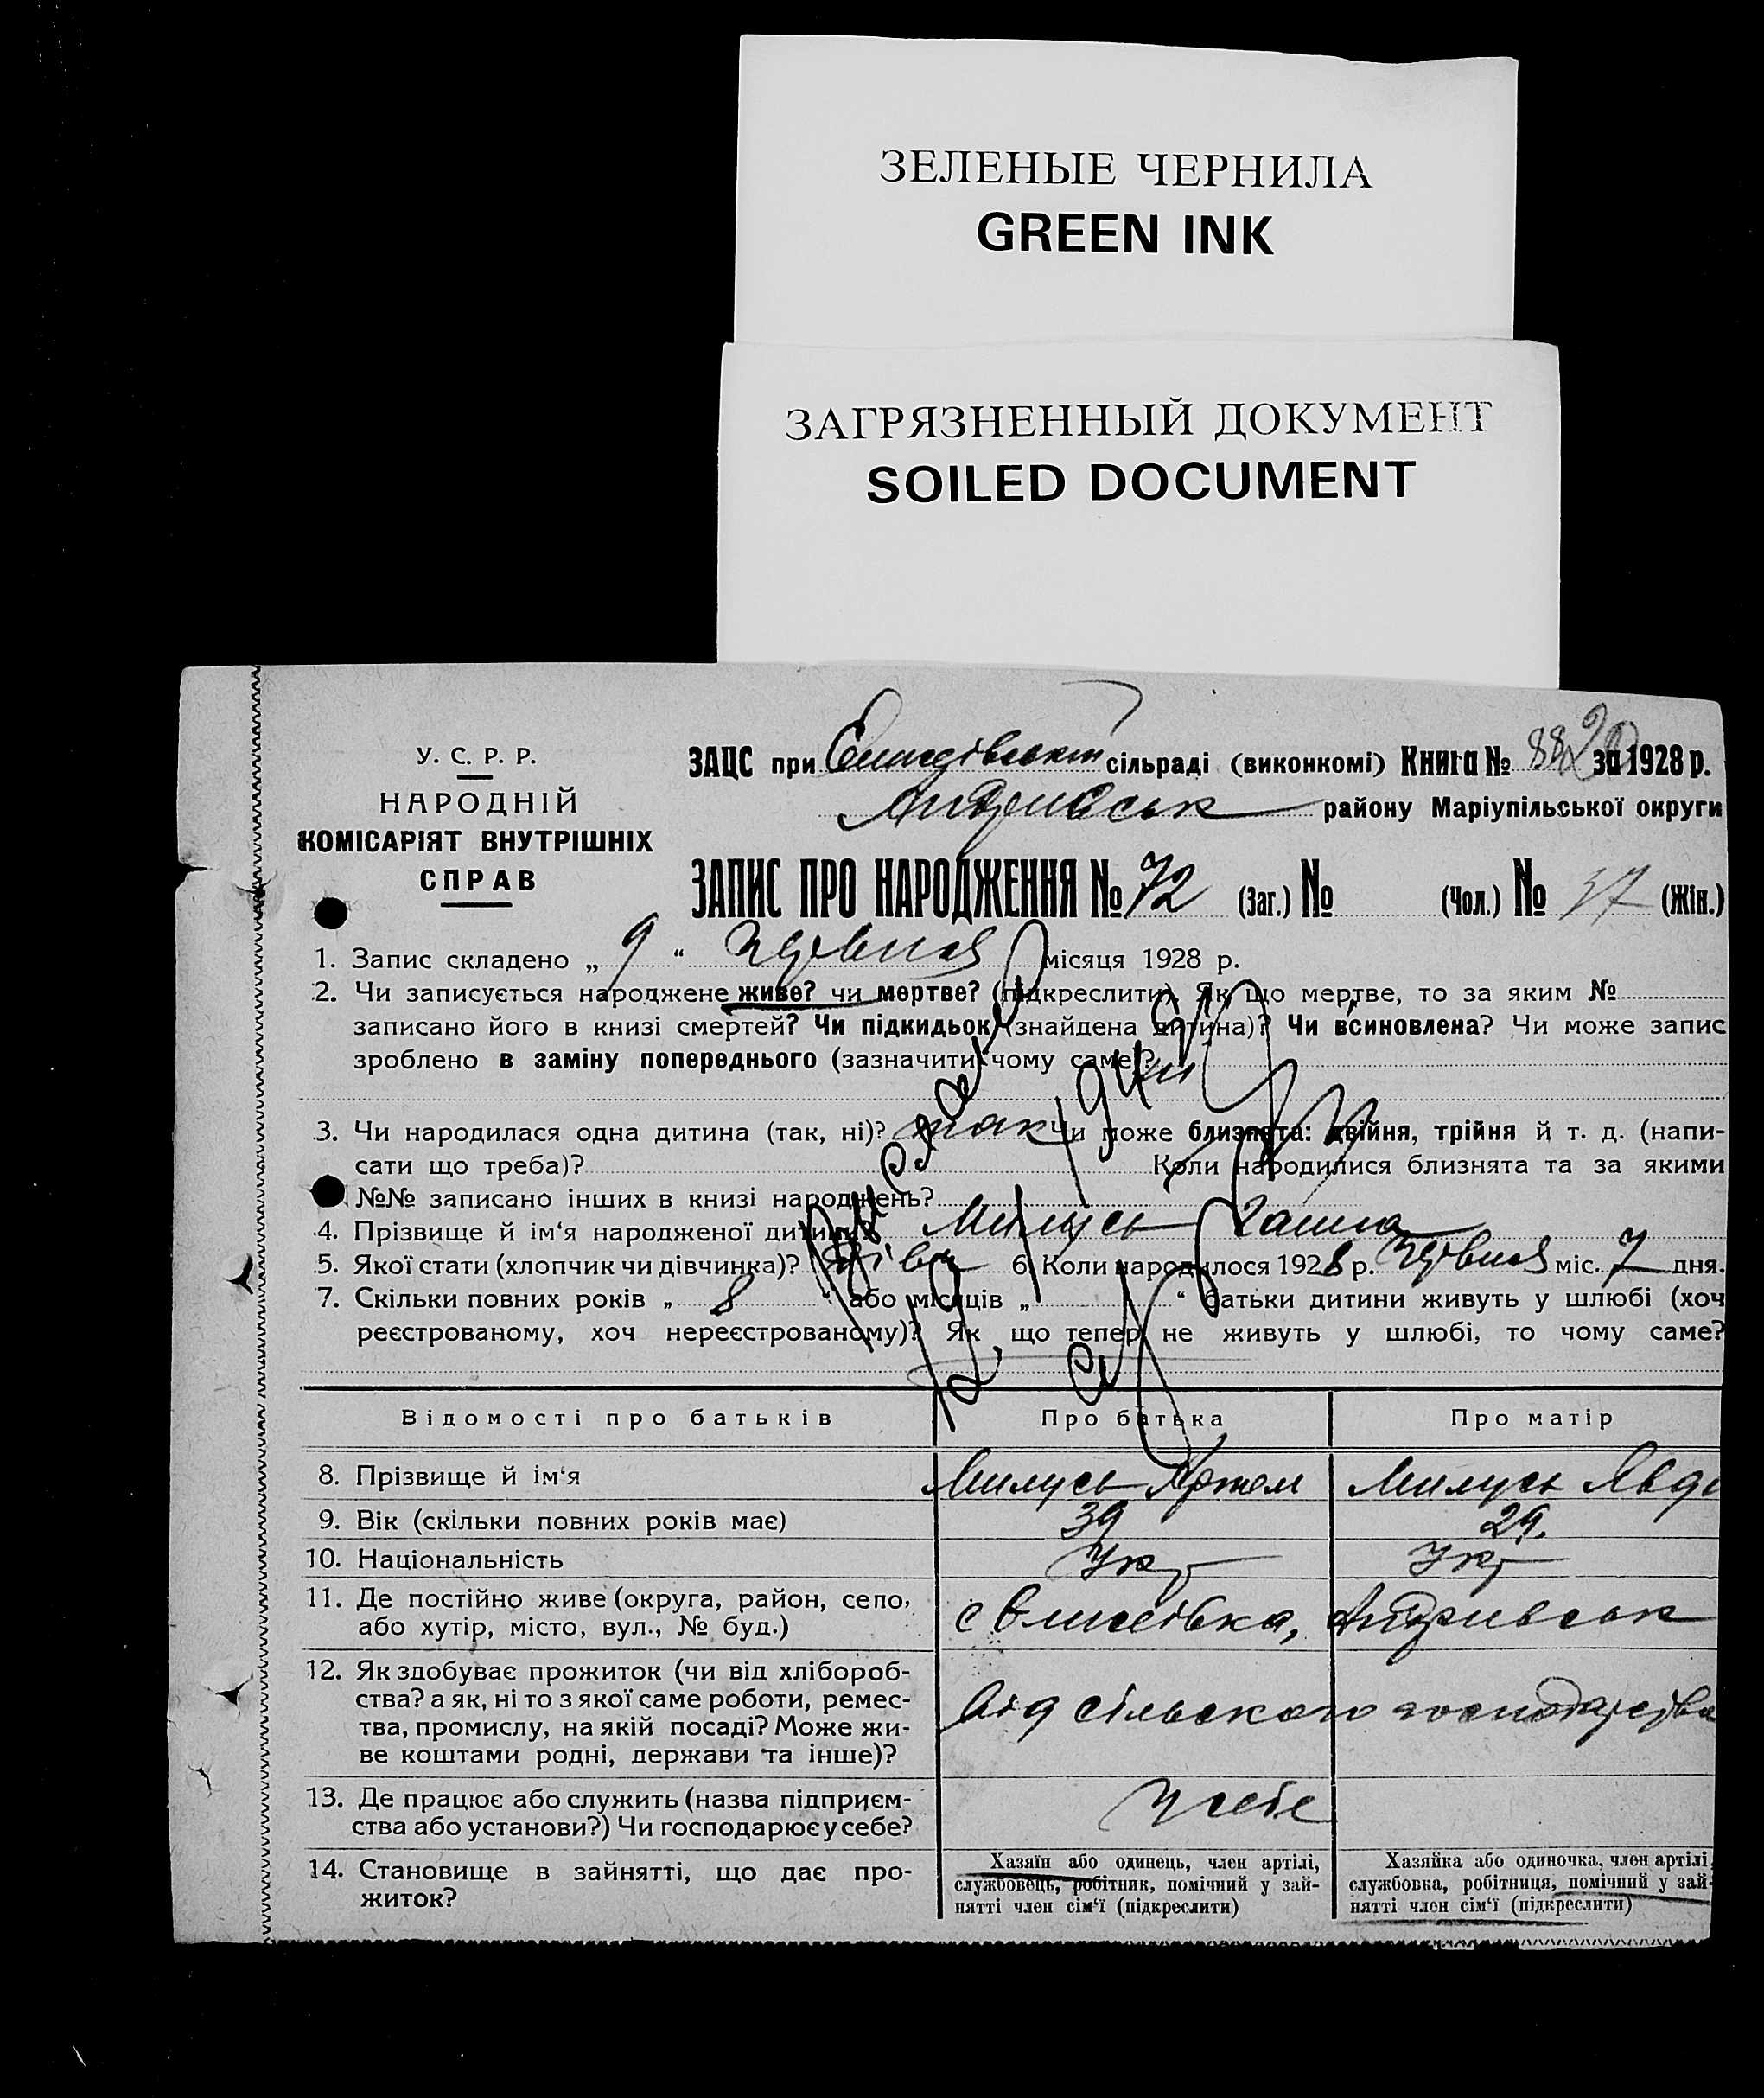 ЗЕЛЕНЫЕ ЧЕРНИЛА
GREEN INK
ЗАГРЯЗНЕННЫЙ ДОКУМЕНТ
SOILED DOCUMENT
У. С. Р. Р.
НАРОДНІЙ
КОМІСАРІЯТ ВНУТРІШНІХ
СПРАВ
ЗАЦС при сільраді (виконкомі) Книга № за 1928 р.
району Маріупільської округи
ЗАПИС ПРО НАРОДЖЕННЯ № 72 (Заг.) № (Чол.) № 37 (Жін.)
1. Запис складено „ 9 “ червня місяця 1928 р.
2. Чи записується народжене живе? чи мертве? (підкреслити). Як що мертве, то за яким №
записано його в книзі смертей? Чи підкидьок (знайдена дитина)? Чи всиновлена? Чи може запис
зроблено в заміну попереднього (зазначити чому саме)?
3. Чи народилася одна дитина (так, ні)? так Чи може близнята: двійня, трійня й т. д. (напи-
сати що треба)? Коли народилися близнята та за якими
№№ записано інших в книзі народжень?
4. Прізвище й ім‘я народженої дитини Милусь Ганна
5. Якої стати (хлопчик чи дівчинка)? дівч 6. Коли народилося 1928 р. червня міс. 7 дня.
7. Скільки повних років „ 8 “ або місяців „ “ батьки дитини живуть у шлюбі (хоч
реєстрованому, хоч нереєстрованому)? Як що тепер не живуть у шлюбі, то чому саме?
Відомості про батьків Про батька Про матір
8. Прізвище й ім‘я Милусь Артем Милусь Явдо
9. Вік (скільки повних років має) 39 29.
10. Національність Укр Укр
11. Де постійно живе (округа, район, село,
або хутір, місто, вул., № буд.)
12. Як здобуває прожиток (чи від хлібороб-
ства? а як, ні то з якої саме роботи, ремес-
тва, промислу, на якій посаді? Може жи-
ве коштами родні, держави та інше)?
Від сільского господарства
13. Де працює або служить (назва підприєм-
ства або установи?) Чи господарює у себе?
У себе
14. Становище в зайнятті, що дає про-
житок?
Хазяїн або одинець, член артілі,
службовець, робітник, помічний у зай-
нятті член сім‘ї (підкреслити)
Хазяйка або одиночка, член артілі,
службовка, робітниця, помічний у зай-
нятті член сім‘ї (підкреслити)